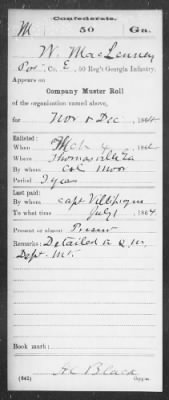 Confederate.
M 50 Ga.
W. MacLenney
Co. E, 50 Reg't Georgia Infantry.
Appears on
Company Muster Roll
of the organization named above,
for Nov & Dec, 1864
Enlisted:
When Mch 4, 186
Where Thomasville Ga
By whom Col Moor
Period 3 years
Last paid:
By whom Capt Villipigue
To what time July 1, 1864.
Present or absent Present
Remarks: Detailed in Q. M.
Dept.
Book mark:
(642) H C Black
Copyist.